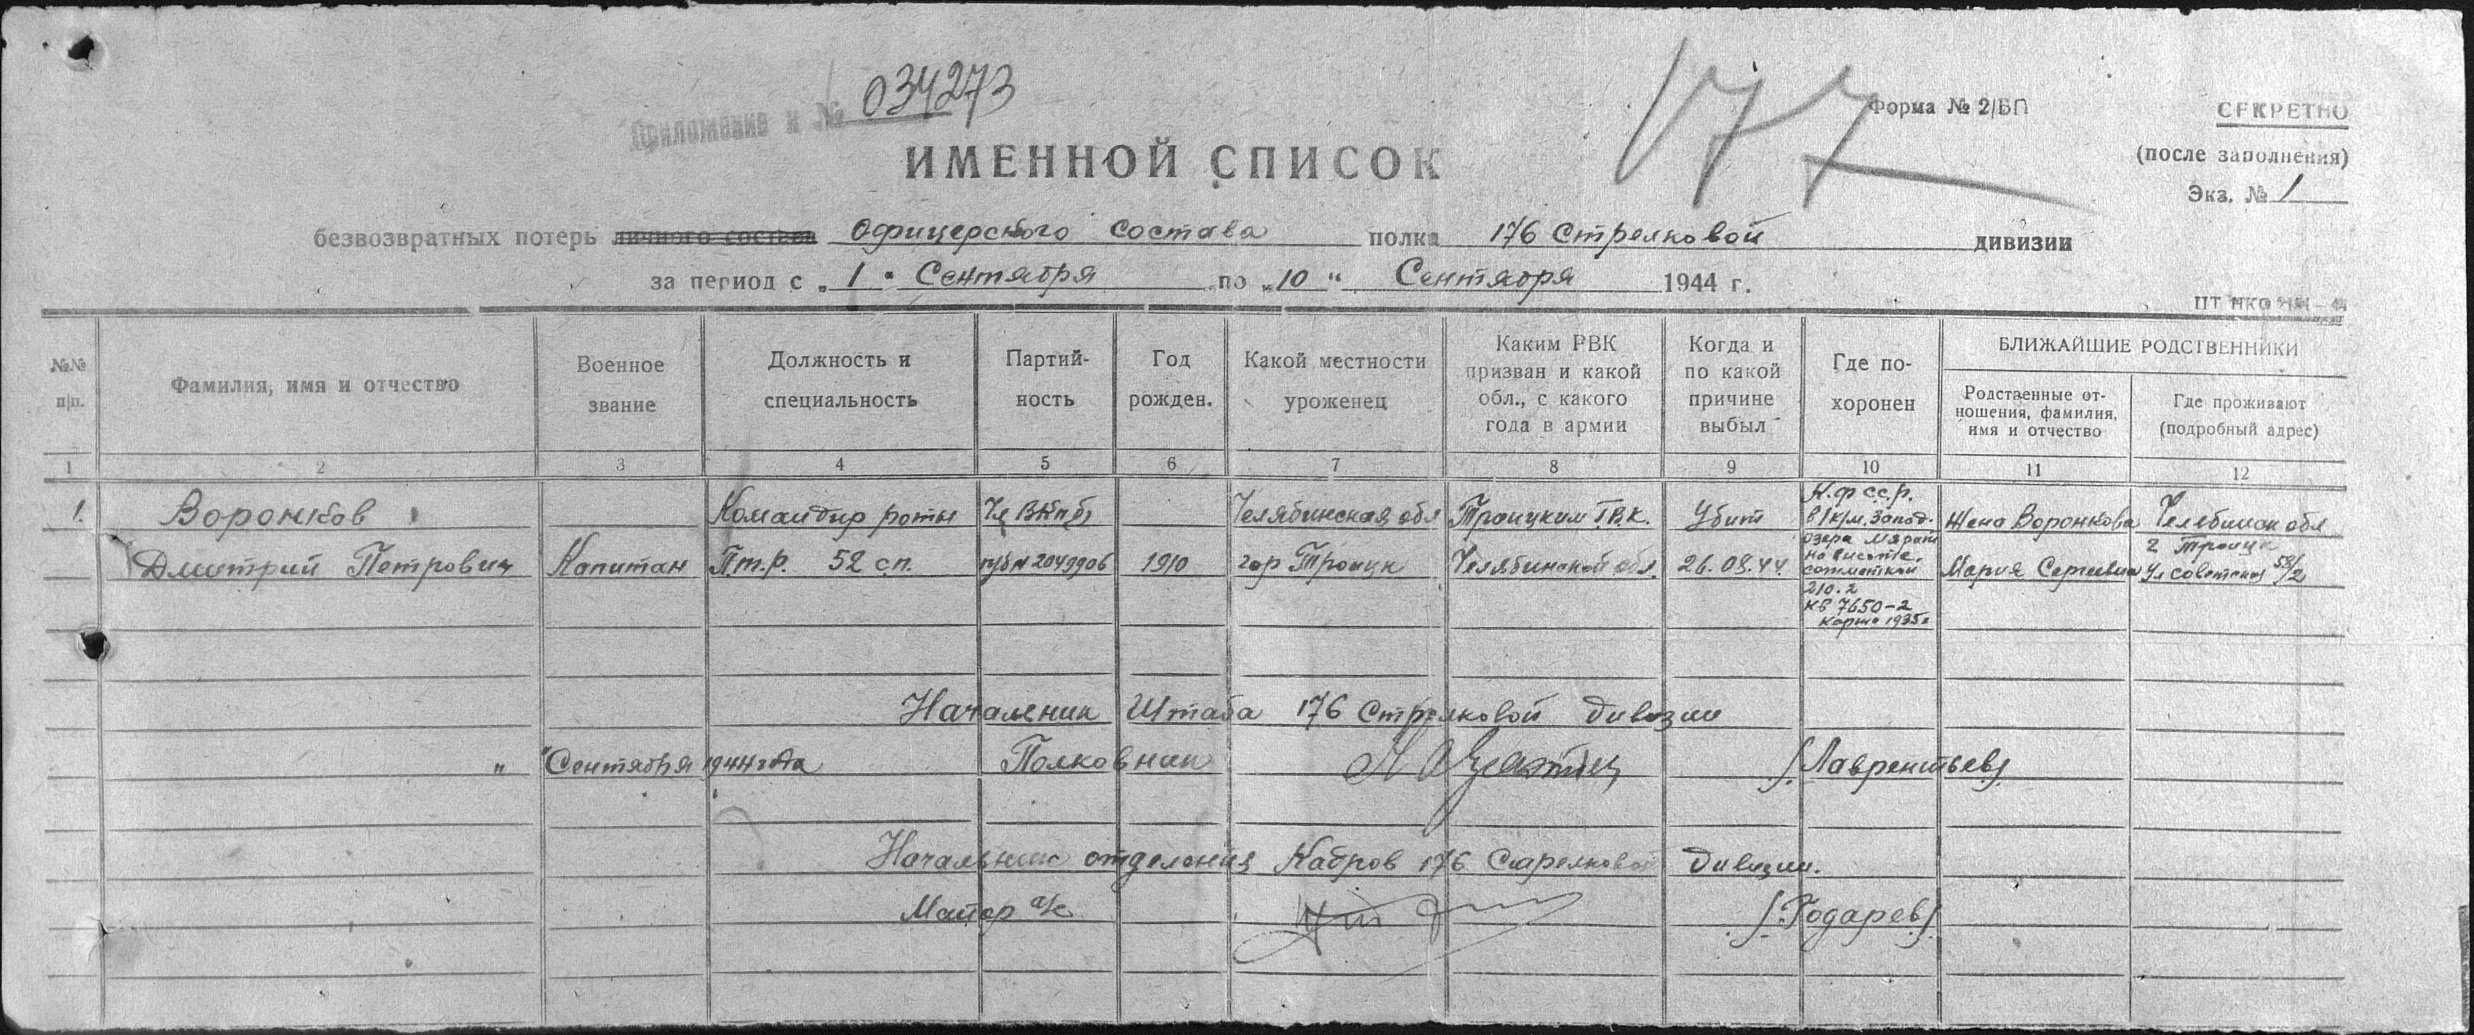 Приложение к № 034273
177
Форма № 2/БП
СЕКРЕТНО
(после заполнения)
Экз. № 1
ИМЕННОЙ СПИСОК
безвозвратных потерь личного состава Офицерского состава полка 176 Стрелковой дивизии
за период с „1" Сентября по „10" Сентября 1944 г.
№№ п/п.
Фамилия, имя и отчество
Военное звание
Должность и специальность
Партийность
Год рожден.
Какой местности уроженец
Каким РВК призван и какой обл., с какого года в армии
Когда и по какой причине выбыл
Где похоронен
БЛИЖАЙШИЕ РОДСТВЕННИКИ
Родственные отношения, фамилия, имя и отчество
Где проживают (подробный адрес)
1 2 3 4 5 6 7 8 9 10 11 12
1.
Воронков
Дмитрий Петрович
Капитан
Командир роты
П.т.р. 52 с.п.
Чл ВКПб
п/б № 2049906
1910
Челябинская обл
гор Троицк
Троицким Г.В.К.
Челябинской обл.
Убит
26.08.44
К.ф с.с.р.
в 1 к/м. Запад.
озера
на высоте.
с отметкой
210.2
кв 7650-2
карта 1935г
Жена Воронкова
Мария Сергеевна
Челебинск обл
г Троицк
Ул Советская 58/2
Начальник Штаба 176 Стрелковой Дивизии
" Сентября 1944 года Полковник /Лаврентьев/
Начальник отделения Кадров 176 Стрелковой Дивизии.
Майор а/с